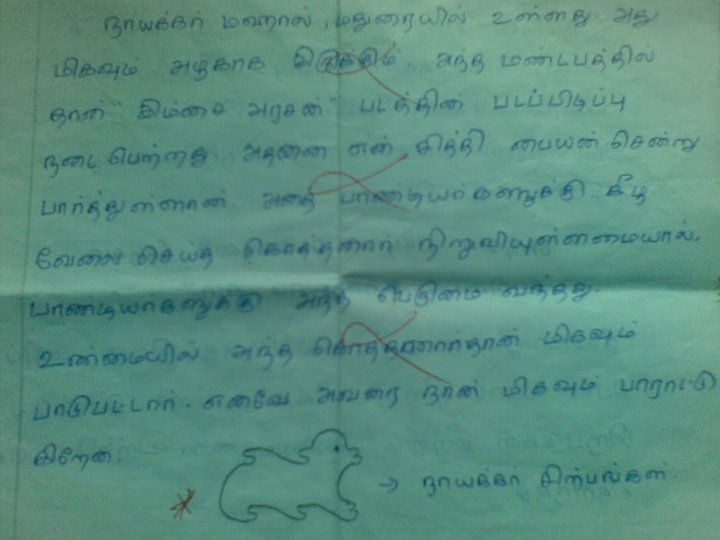 நாயக்கர் மஹால், மதுரையில் உள்ளது அது
மிகவும் அழகாக இருக்கும். அந்த மண்டபத்தில்
தான் "இம்சை அரசன்" படத்தின் படப்பிடிப்பு
நடைபெற்றது அதனை என் சித்தி பையன் சென்று
பார்த்துள்ளான். அதை பாண்டியர்களுக்கு கீழ்
வேலை செய்த கொத்தனார் நிறுவியுள்ளமையால்,
பாண்டியர்களுக்கு அந்த பெருமை வந்தது.
உண்மையில் அந்த கொத்தனார்தான் மிகவும்
பாடுபட்டார். எனவே அவரை நான் மிகவும் பாராட்டு
கிறேன்.
→ நாயக்கர் சிற்பங்கள்.